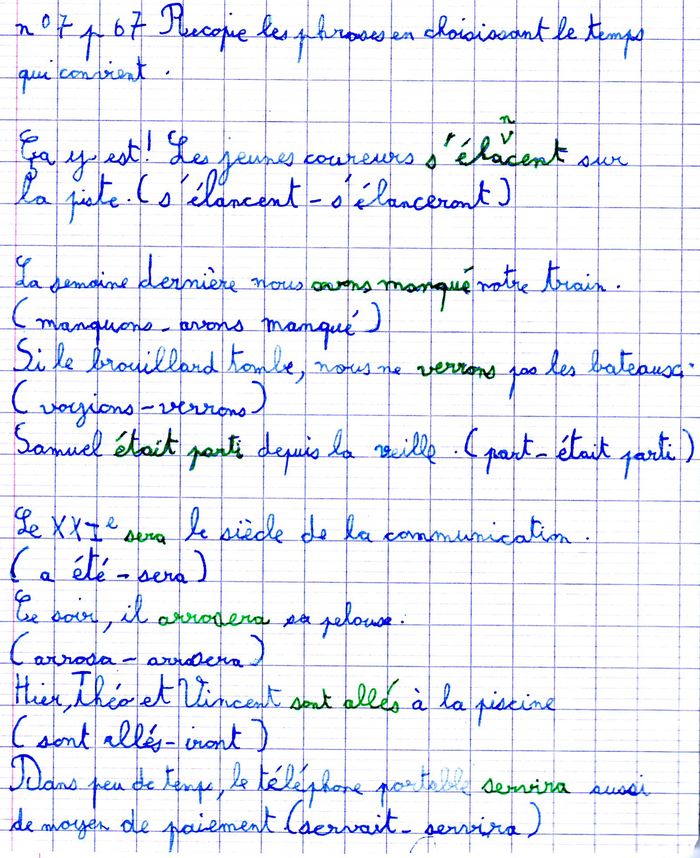 n°7 p 67 Recopie les phrases en choisissant le temps
qui convient .
n
v
Ça y est! Les jeunes coureurs s'élacent sur
la piste. (s'élancent - s'élanceront)
La semaine dernière nous avons manqué notre train.
(manquons - avons manqué)
Si le brouillard tombe, nous ne verrons pas les bateaux.
(voyions - verrons)
Samuel était parti depuis la veille. (part - était parti)
Le XXIe sera le siècle de la communication.
(a été - sera)
Ce soir, il arrosera sa pelouse.
(arrosa - arrosera)
Hier, Théo et Vincent sont allés à la piscine
(sont allés - iront)
Dans peu de temps, le téléphone portable servira aussi
de moyen de paiement (servait - servira)